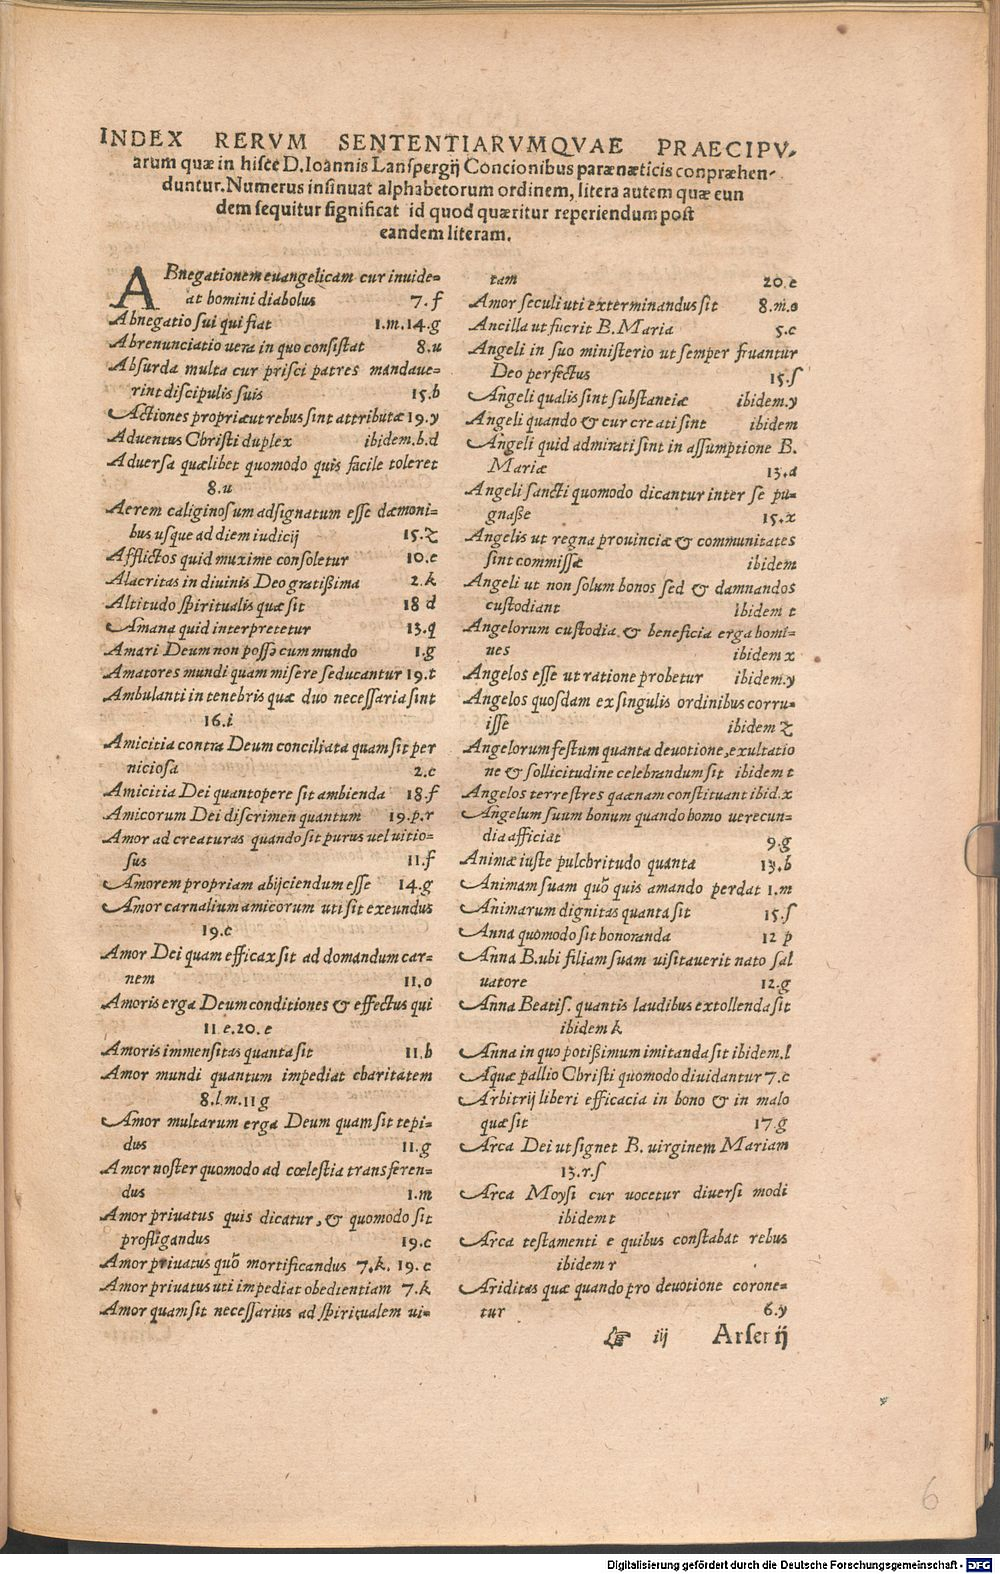 INDEX RERVM SENTENTIARVMQVAE PRAECIPV-
arum quæ in hisce D. Ioannis Lanspergij Concionibus parænæticis conpræhen-
duntur. Numerus insinuat alphabetorum ordinem, litera autem quæ eun
dem sequitur significat id quod quæritur reperiendum post
eandem literam.
ABnegationem euangelicam cur inuide=
at homini diabolus 7.f
Abnegatio sui qui fiat 1.m.14.g
Abrenunciatio uera in quo consistat 8.u
Absurda multa cur prisci patres mandaue=
rint discipulis suis 15.b
Actiones propriæ ut rebus sint attributæ 19.y
Aduentus Christi duplex ibidem.b.d
Aduersa quælibet quomodo quis facile toleret
8.u
Aerem caliginosum adsignatum esse dæmoni=
bus usque ad diem iudicij 15.z
Afflictos quid maxime consoletur 10.e
Alacritas in diuinis Deo gratißima 2.k
Altitudo spiritualis quæ sit 18 d
Amana quid interpretetur 13.q
Amari Deum non posse cum mundo 1.g
Amatores mundi quam misere seducantur 19.t
Ambulanti in tenebris quæ duo necessaria sint
16.i
Amicitia contra Deum conciliata quam sit per
niciosa 2.c
Amicitia Dei quantopere sit ambienda 18.f
Amicorum Dei discrimen quantum 19.p.r
Amor ad creaturas quando sit purus uel uitio=
sus 11.f
Amorem propriam abijciendum esse 14.g
Amor carnalium amicorum uti sit exeundus
19.c
Amor Dei quam efficax sit ad domandum car=
nem 11.o
Amoris erga Deum conditiones & effectus qui
11 e.20.e
Amoris immensitas quanta sit 11.b
Amor mundi quantum impediat charitatem
8.l.m.11 g
Amor multarum erga Deum quam sit tepi=
dus 11.g
Amor noster quomodo ad cœlestia transferen=
dus 1.m
Amor priuatus quis dicatur, & quomodo sit
profligandus 19.c
Amor priuatus quõ mortificandus 7.k. 19.c
Amor priuatus uti impediat obedientiam 7.k
Amor quam sit necessarius ad spiritualem ui=
tam 20.e
Amor seculi uti exterminandus sit 8.m.o
Ancilla ut fuerit B. Maria 5.c
Angeli in suo ministerio ut semper fruantur
Deo perfectus 15.ſ
Angeli qualis sint substaneiæ ibidem.y
Angeli quando & cur creati sint ibidem
Angeli quid admirati sint in assumptione B.
Mariæ 13.d
Angeli sancti quomodo dicantur inter se pu=
gnaße 15.x
Angelis ut regna prouinciæ & communitates
sint commissæ ibidem
Angeli ut non solum bonos sed & damnandos
custodiant ibidem t
Angelorum custodia & beneficia erga homi=
nes ibidem x
Angelos esse ut ratione probetur ibidem.y
Angelos quosdam ex singulis ordinibus corru=
isse ibidem z
Angelorum festum quanta deuotione, exultatio
ne & sollicitudine celebrandum sit ibidem t
Angelos terrestres quænam constituant ibid.x
Angelum suum bonum quando homo uerecun=
dia afficiat 9.g
Animæ iuste pulchritudo quanta 13.b
Animam suam quõ quis amando perdat 1.m
Animarum dignitas quanta sit 15.ſ
Anna quomodo sit honoranda 12 p
Anna B. ubi filiam suam uisitauerit nato sal
uatore 12.g
Anna Beatis. quantis laudibus extollenda sit
ibidem k
Anna in quo potißimum imitanda sit ibidem.l
Aquæ pallio Christi quomodo diuidantur 7.c
Arbitrij liberi efficacia in bono & in malo
quæ sit 17.g
Arca Dei ut signet B. uirginem Mariam
13.r.ſ
Arca Moysi cur uocetur diuersi modi
ibidem t
Arca testamenti e quibus constabat rebus
ibidem r
Ariditas quæ quando pro deuotione corone=
tur 6.y
☞ iij Arsenij
6
Digitalisierung gefördert durch die Deutsche Forschungsgemeinschaft - DFG